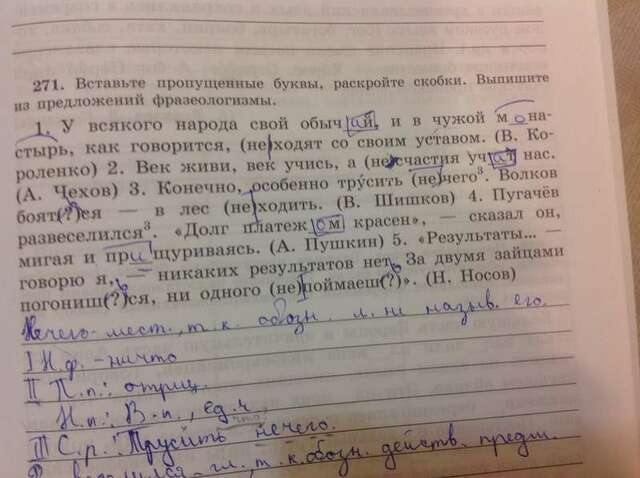 271. Вставьте пропущенные буквы, раскройте скобки. Выпишите
из предложений фразеологизмы.
1. У всякого народа свой обычай, и в чужой мона-
стырь, как говорится, (не)ходят со своим уставом. (В. Ко-
роленко) 2. Век живи, век учись, а (не)счастия учат нас.
(А. Чехов) 3. Конечно, особенно трусить (не)чего³. Волков
боят(?)ся — в лес (не)ходить. (В. Шишков) 4. Пугачёв
развеселился³. «Долг платежом красен», — сказал он,
мигая и прищуриваясь. (А. Пушкин) 5. «Результаты... —
говорю я, — никаких результатов нет. За двумя зайцами
погониш(?)ся, ни одного (не)поймаеш(?)». (Н. Носов)
Нечего - мест., т. к. обозн. п. не назыв. его.
I Н.ф. - ничто
II П.п.: отриц.
Н.п.: В.п., ед.ч.
что?
III С.р.: Трусить нечего.
гл., т.к. обозн. действ. предм.